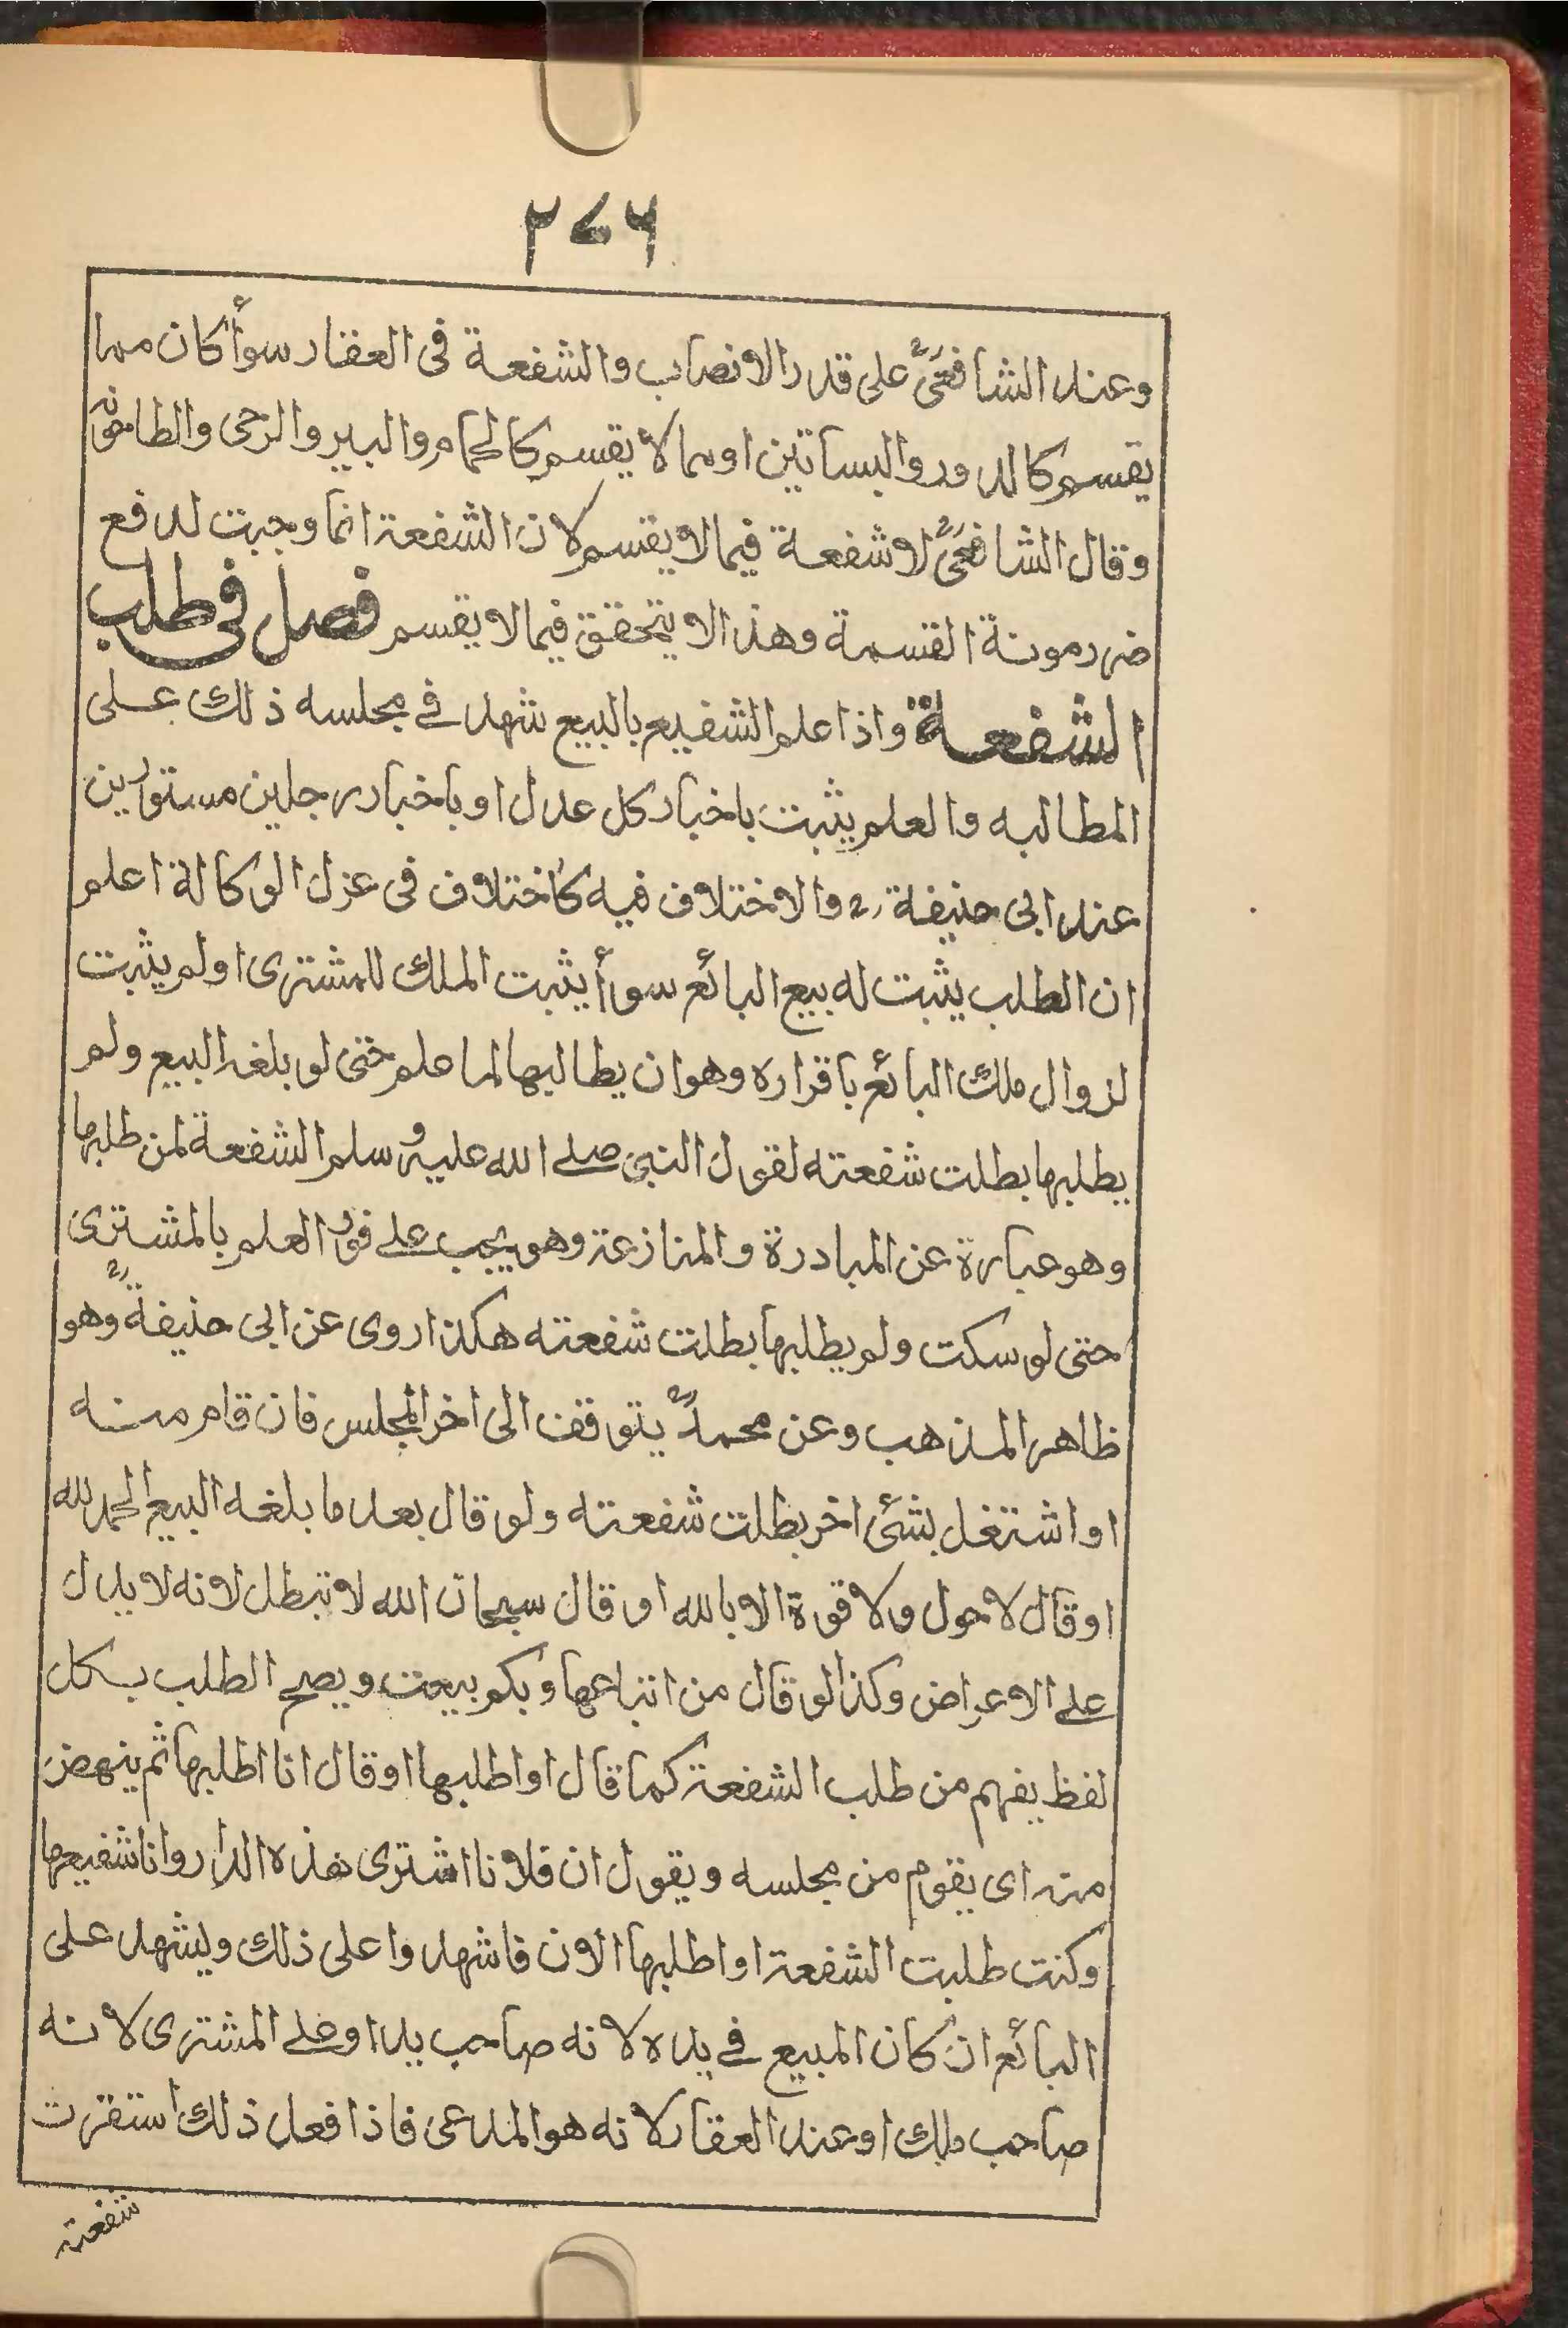 ۲۷۶
وعند الشافعىؒ على قدر الانصاب والشفعة فى العقار سوأ كان مما
يقسم كالدور والبساتين او مما لا يقسم كالحمام والبير والرحى والطاحونة
وقال الشافعىؒ لا شفعة فيما لا يقسم لان الشفعة انما وجبت لدفع
ضرر مونة القسمة وهذا لا يتحقق فيما لا يقسم فصل فى طلب
الشفعة واذا علم الشفيع بالبيع شهد فے مجلسه ذلك على
المطالبه والعلم يثبت باخبار كل عدل او باخبار رجلين مستورين
عند ابى حنيفة رح والاختلاف فيه كاختلاف فى عزل الوكالة اعلم
ان الطلب يثبت له ببيع البائع سوأ يثبت الملك للمشترى اولم يثبت
لزوال ملك البائع باقراره وهو ان يطالبها لما علم حتى لو بلغه البيع ولم
يطلبها بطلت شفعته لقول النبى صلے الله عليه وسلم الشفعة لمن طلبها
وهو عبارة عن المبادرة والمنازعة وهو يجب علے فور العلم بالمشترى
حتى لو سكت ولم يطلبها بطلت شفعته هكذا روى عن ابى حنيفةؒ وهو
ظاهر المذهب وعن محمدؒ يتوقف الى اخر المجلس فان قام منه
او اشتغل بشئ اخر بطلت شفعته ولو قال بعد ما بلغه البيع الحمد لله
او قال لا حول ولا قوة الا بالله او قال سبحان الله لا تبطل لانه لا يدل
علے الاعراض وكذا لو قال من ابتاعها وبكم بيعت ويصح الطلب بكل
لفظ يفهم من طلب الشفعة كما قال او اطلبها او قال انا اطلبها ثم ينهض
منه اى يقوم من مجلسه ويقول ان فلانا اشترى هذه الدار وانا شفيعها
وكنت طلبت الشفعة او اطلبها الان فاشهدوا على ذلك وليشهد على
البائع ان كان المبيع فے يده لانه صاحب يد او علے المشترى لانه
صاحب ملك او عند العقار لانه هو المدعى فاذا فعل ذلك استقرت
شفعته